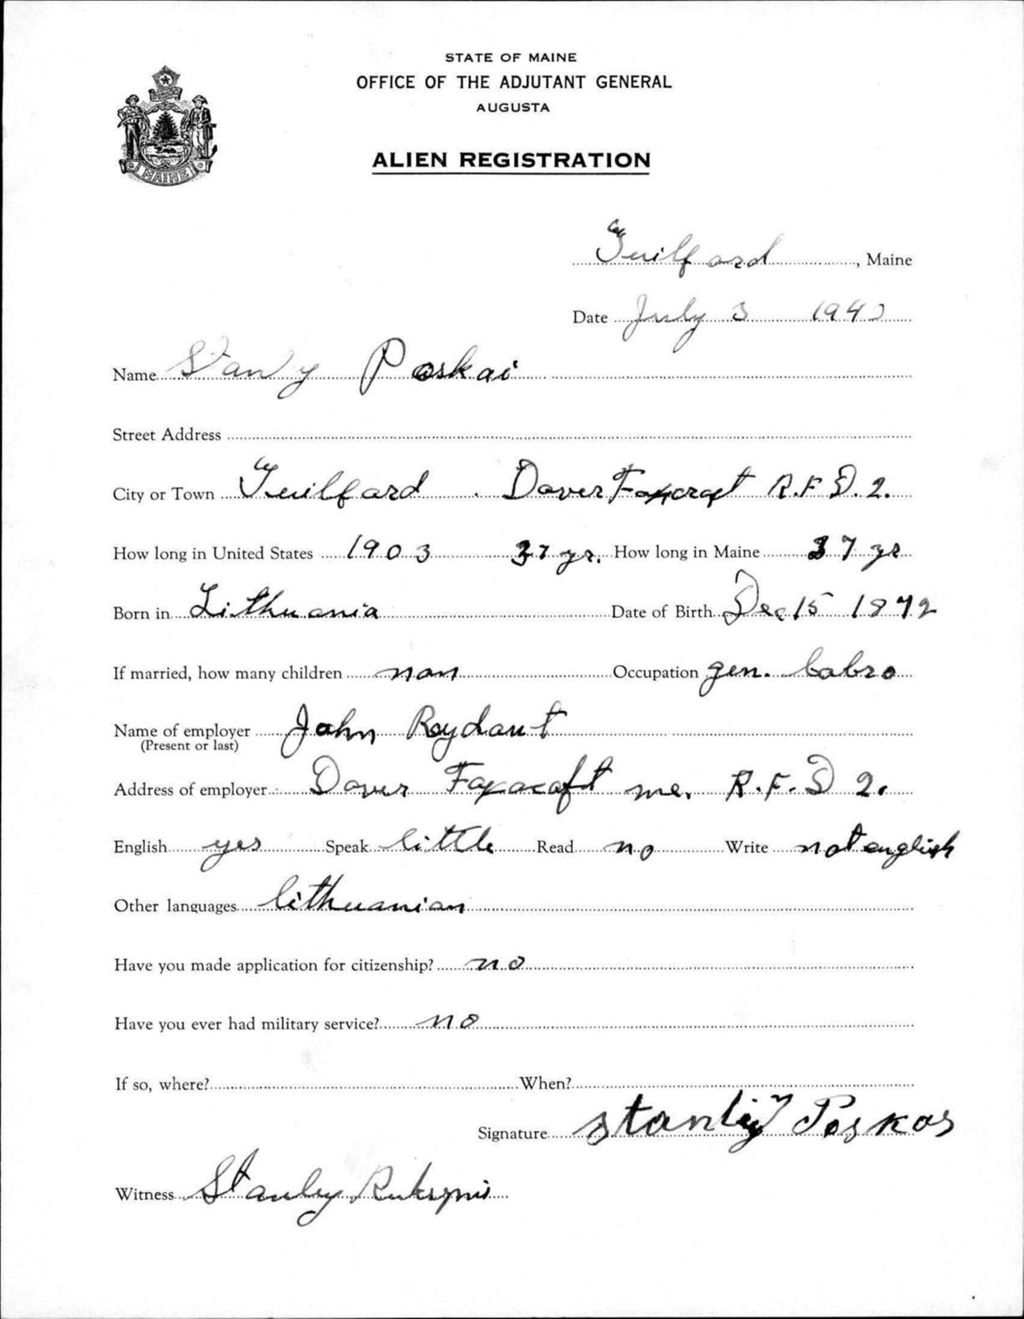 STATE OF MAINE
OFFICE OF THE ADJUTANT GENERAL
AUGUSTA
ALIEN REGISTRATION
MAINE
Guilford, Maine
Date July 3 1940
Name Stanly Poskai
Street Address
City or Town Guilford . Dover Foxcroft R.F.D. 2.
How long in United States 1903 37 yr. How long in Maine 37 yr
Born in Lithuania Date of Birth Dec 15 1872
If married, how many children non Occupation gen. labro
Name of employer John Roydant
(Present or last)
Address of employer Dover Foxcraft me. R.F.D 2.
English yes Speak little Read no Write not english
Other languages lithuanian
Have you made application for citizenship? no
Have you ever had military service? no
If so, where? When?
Signature Stanley Poskos
Witness Stanley